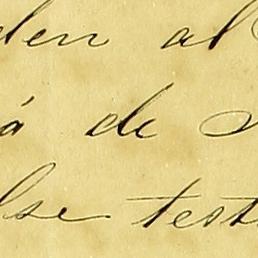 den al
á de
lse test